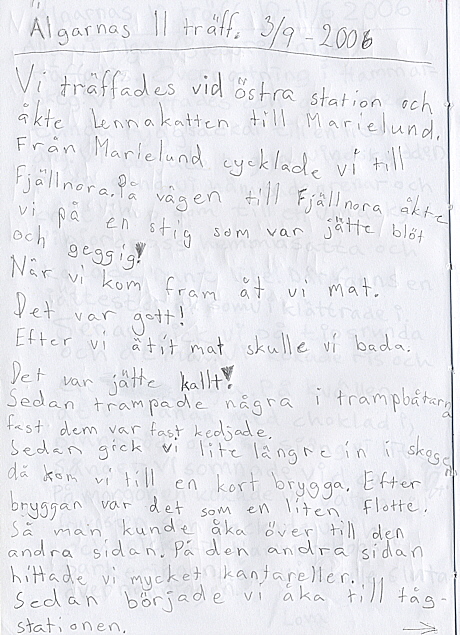 Älgarnas 11 träff. 3/9-2006
Vi träffades vid östra station och
åkte Lennakatten till Marielund.
Från Marielund cycklade vi till
Fjällnora. På vägen till Fjällnora åkte
vi på en stig som var jätte blöt
och geggig!
När vi kom fram åt vi mat.
Det var gott!
Efter vi ätit mat skulle vi bada.
Det var jätte kallt!
Sedan trampade några i trampbåtarna
fast dem var fast kedjade.
Sedan gick vi lite längre in i skogen
då kom vi till en kort brygga. Efter
bryggan var det som en liten flotte.
Så man kunde åka över till den
andra sidan. På den andra sidan
hittade vi mycket kantareller.
Sedan började vi åka till tåg-
stationen. →